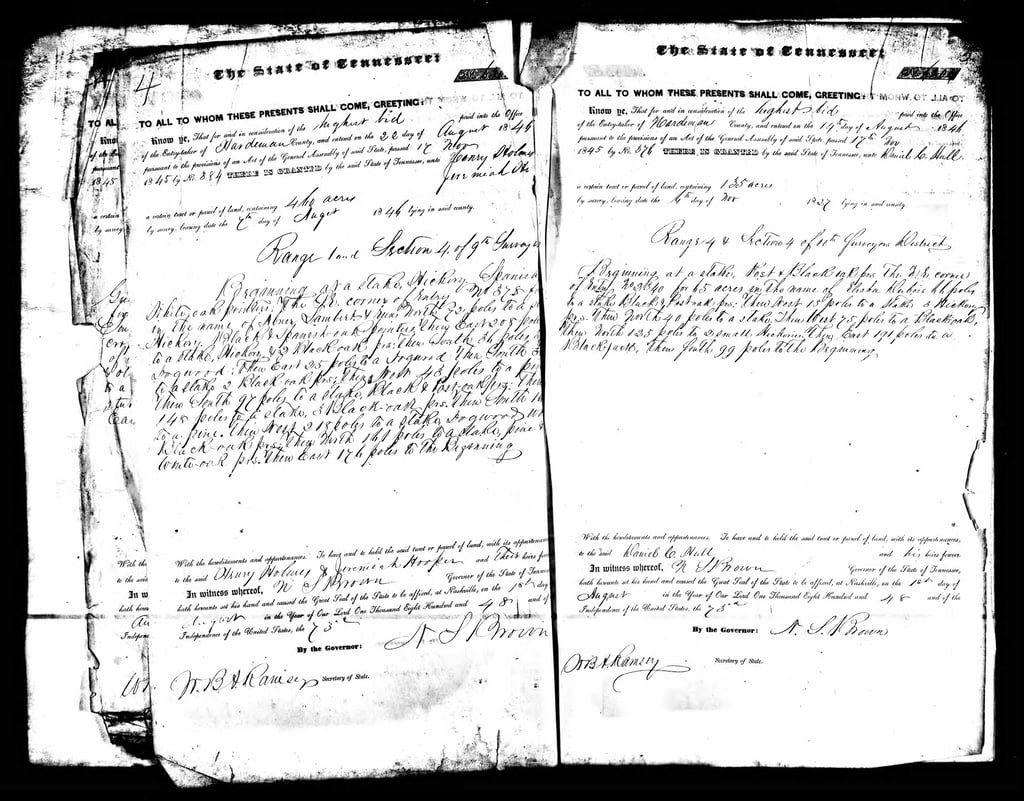 4
The State of Tennessee:
TO ALL TO WHOM THESE PRESENTS SHALL COME, GREETING:
Know ye, That for and in consideration of the highest bid paid into the Office
of the Entry-taker of Hardeman County, and entered on the 22 day of August 1846
pursuant to the provisions of an Act of the General Assembly of said State, passed 17 Nov
1845 by No. 384 THERE IS GRANTED by the said State of Tennessee, unto Henry Holmes
Jeremiah
a certain tract or parcel of land, containing 460 acres
by survey, bearing date the 7th day of August 1846 lying in said county.
Range 1 and Section 4. of 9th Surveyors
Beginning at a stake, Hickory Spanish
White oak pointers: The S.E. corner of Entry No 375
in the name of Abner Lambert & runs North 72 poles to a
Hickory, Black & Spanish oak pointers, then East 208 poles
to a stake, Hickory & 2 Black oak prs: then South 36 poles
Dogwood: Then East 35 poles to a Dogwood Then South
to a stake 2 Black oak prs: Then West 43 poles to a
Then South 97 poles to a stake, Black & Post oak prs: Then
148 poles to a stake, 3 Black-oak prs. Then South
to a pine. Then West 218 poles to a stake, Dogwood
Black-oak prs: Then North 161 poles to a stake, pine
White-oak prs: Then East 176 poles to the Beginning
With the hereditaments and appurtenances. To have and to hold the said tract or parcel of land, with its appurtenances,
to the said Henry Holmes & Jeremiah Hooper and their heirs forever
In witness whereof, N S Brown Governor of the State of Tennessee,
hath hereunto set his hand and caused the Great Seal of the State to be affixed, at Nashville, on the 1st day
August in the Year of Our Lord One Thousand Eight Hundred and 48 and of
Independence of the United States, the 73rd
By the Governor: N. S. Brown
W. B. A. Ramsey Secretary of State.
The State of Tennessee:
TO ALL TO WHOM THESE PRESENTS SHALL COME, GREETING:
Know ye, That for and in consideration of the highest bid paid into the Office
of the Entry-taker of Hardeman County, and entered on the 19th day of August 1846
pursuant to the provisions of an Act of the General Assembly of said State, passed 17th Nov
1845 by No. 376 THERE IS GRANTED by the said State of Tennessee, unto Daniel C. Hull
a certain tract or parcel of land, containing 135 acres
by survey, bearing date the 6th day of Nov 1827 lying in said county.
Range 4 & Section 4 of 10th Surveyors District
Beginning at a stake, Post & Black oak prs The N.E corner
of Entry No 2340 for 65 acres in the name of
to a stake Black & Post oak prs: Then West 15 poles to a stake 3 Hickory
prs: Then North 40 poles to a stake, Then West 75 poles to a Black oak,
Then North 125 poles to 2 small Hickories, Then East 171 poles to a
Black jack, Then South 99 poles to the Beginning
With the hereditaments and appurtenances. To have and to hold the said tract or parcel of land, with its appurtenances,
to the said Daniel C. Hull and his heirs forever.
In witness whereof, N S Brown Governor of the State of Tennessee,
hath hereunto set his hand and caused the Great Seal of the State to be affixed, at Nashville, on the 1st day of
August in the Year of Our Lord One Thousand Eight Hundred and 48 and of the
Independence of the United States, the 73rd
By the Governor: N. S. Brown
W B A. Ramsey Secretary of State.